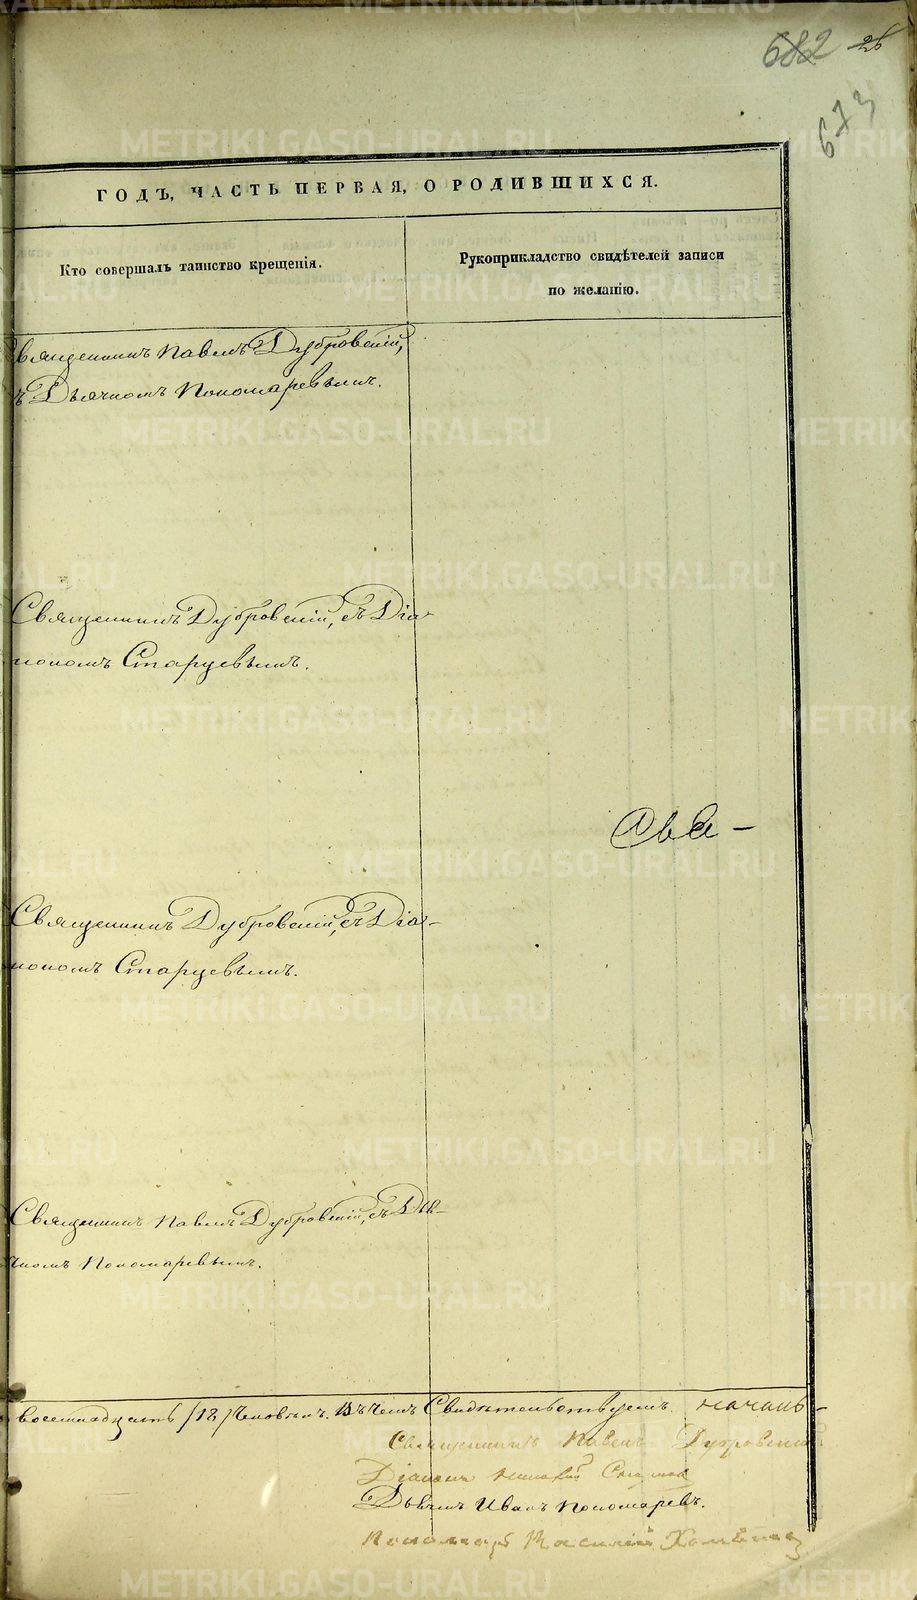 682 26
673
ГОДЪ, ЧАСТЬ ПЕРВАЯ, О РОДИВШИХСЯ.
Кто совершалъ таинство крещенія.
Рукоприкладство свидѣтелей записи
по желанію.
вященникъ Павелъ Дубровскій,
ъ Дьячкомъ Пономаревымъ.
Священникъ Дубровскій, съ Діа-
кономъ Старцевымъ.
Свя-
Священникъ Дубровскій, съ Діа-
кономъ Старцевымъ.
Священникъ Павелъ Дубровскій, съ Дья-
чкомъ Пономаревымъ.
восемнадцать /18/ человѣкъ. Въ чемъ Свидѣтельствуемъ
Священникъ Павелъ Дубровскій
Діаконъ
Дьячекъ Иванъ Пономаревъ.
Пономарь Василій
METRIKI.GASO-URAL.RU